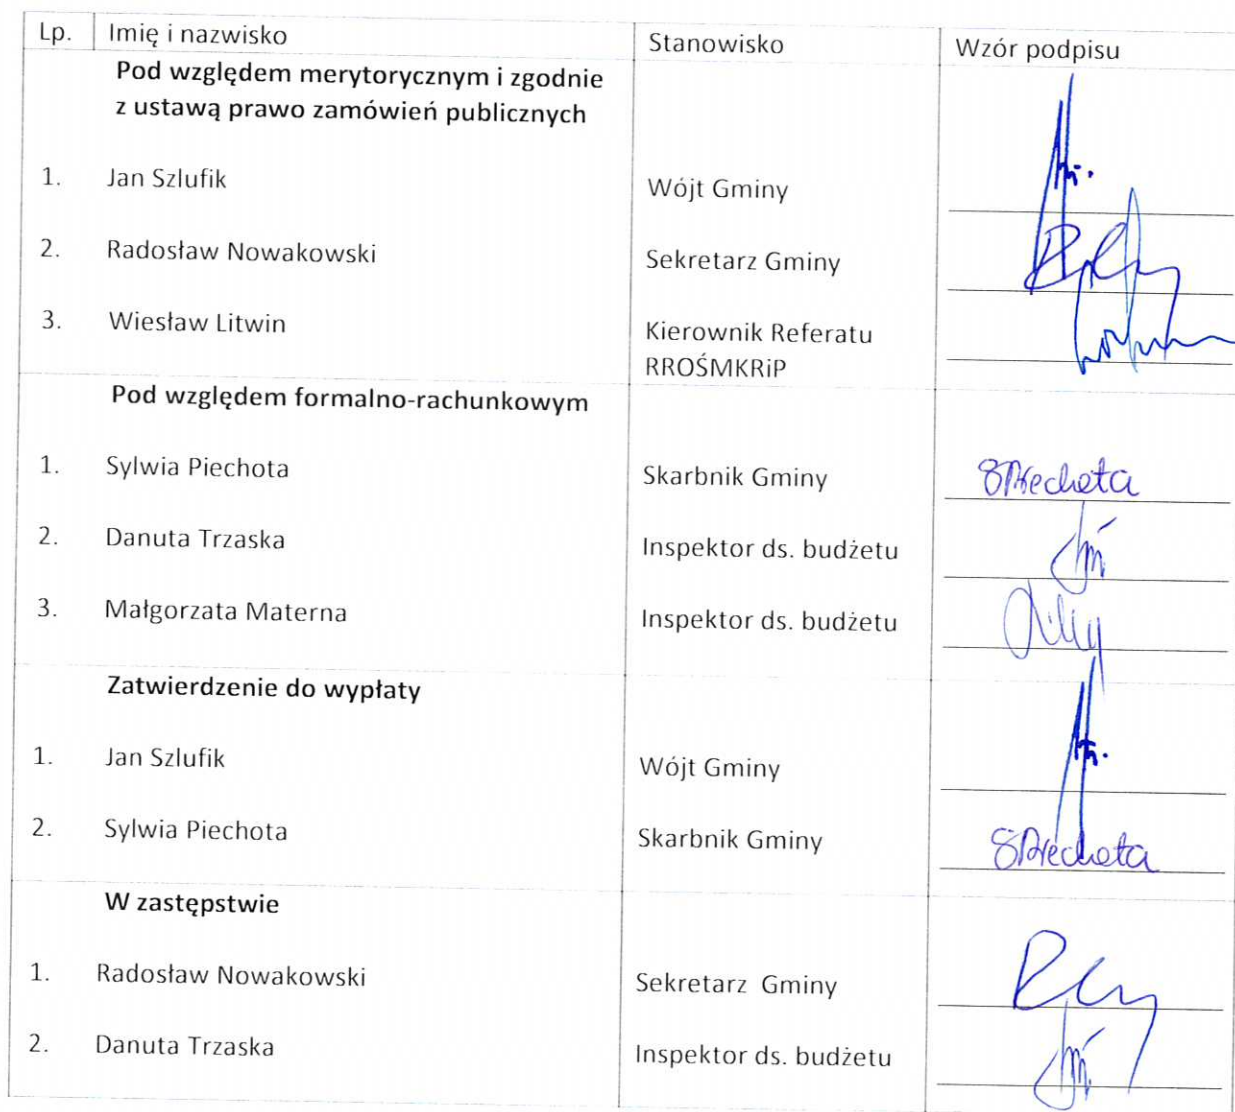 Lp. Imię i nazwisko Stanowisko Wzór podpisu
Pod względem merytorycznym i zgodnie
z ustawą prawo zamówień publicznych
1. Jan Szlufik Wójt Gminy
2. Radosław Nowakowski Sekretarz Gminy
3. Wiesław Litwin Kierownik Referatu
RROŚMKRiP
Pod względem formalno-rachunkowym
1. Sylwia Piechota Skarbnik Gminy SPiechota
2. Danuta Trzaska Inspektor ds. budżetu
3. Małgorzata Materna Inspektor ds. budżetu
Zatwierdzenie do wypłaty
1. Jan Szlufik Wójt Gminy
2. Sylwia Piechota Skarbnik Gminy SPiechota
W zastępstwie
1. Radosław Nowakowski Sekretarz Gminy
2. Danuta Trzaska Inspektor ds. budżetu